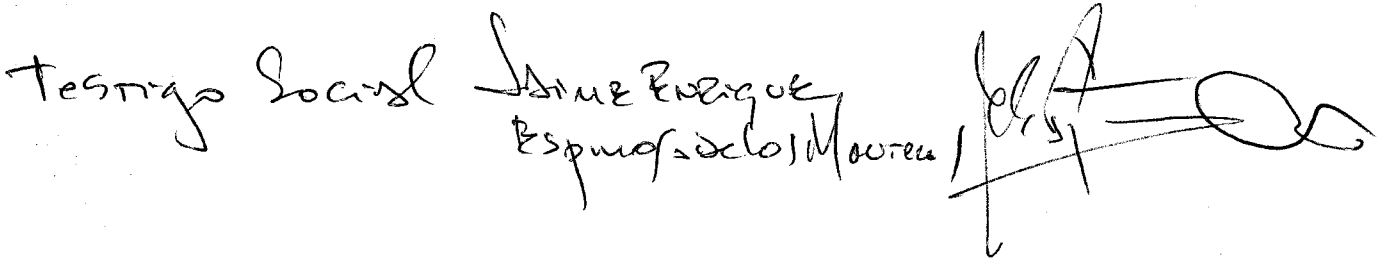 Testigo Social Jaime Enrique
Espinosa de los Monteros